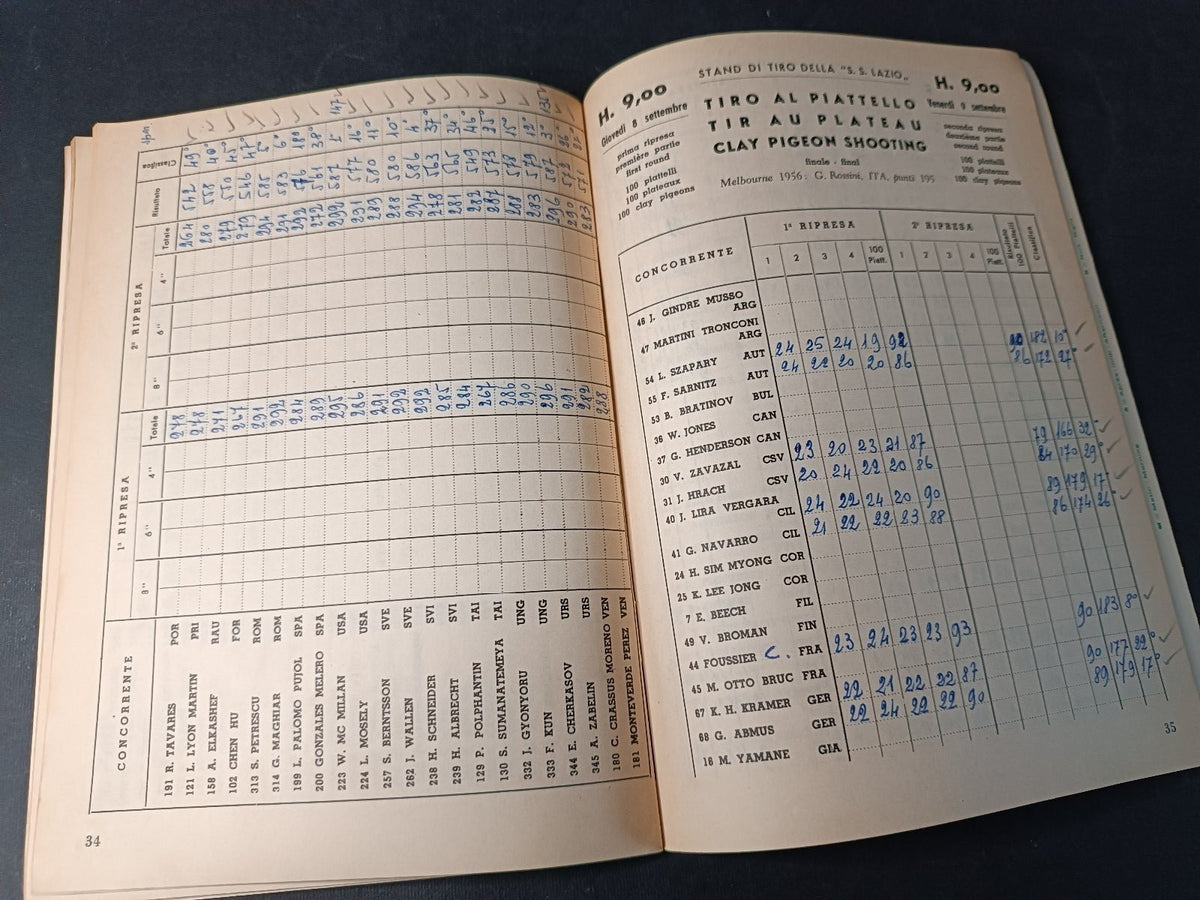 1ª RIPRESA
2ª RIPRESA
CONCORRENTE
8" 6" 4" Totale 8" 6" 4" Totale Risultato Classifica
191 R. TAVARES POR 278 264 542 49°
121 L. LYON MARTIN PRI 278 280 558 40°
158 A. ELKASHEF RAU 271 279 550 45°
102 CHEN HU FOR 267 279 546 47°
313 S. PETRESCU ROM 291 294 585 5°
314 G. MAGHIAR ROM 292 291 583 6°
199 L. PALOMO PUJOL SPA 284 292 576 18°
200 GONZALES MELERO SPA 289 272 561 38°
223 W. MC MILLAN USA 295 292 587 1°
224 L. MOSELY USA 286 291 577 16°
257 S. BERNTSSON SVE 291 289 580 11°
262 J. WALLEN SVE 292 288 580 10°
238 H. SCHNEIDER SVI 292 294 586 4°
239 H. ALBRECHT SVI 285 278 563 37°
129 P. POLPHANTIN TAI 284 281 565 34°
130 S. SUMANATEMEYA TAI 267 282 549 46°
332 J. GYONYORU UNG 286 287 573 25°
333 F. KUN UNG 290 288 578 15°
344 E. CHERKASOV URS 296 283 579 12°
345 A. ZABELIN URS 291 296 587 3°
180 C. CRASSUS MORENO VEN 282 290 572
181 MONTEVERDE PEREZ VEN 288 283 571
34
STAND DI TIRO DELLA "S. S. LAZIO"
H. 9,00
Giovedì 8 settembre
prima ripresa
première partie
first round
100 piattelli
100 plateaux
100 clay pigeons
TIRO AL PIATTELLO
TIR AU PLATEAU
CLAY PIGEON SHOOTING
finale - final
Melbourne 1956: G. Rossini, ITA, punti 195
H. 9,00
Venerdì 9 settembre
seconda ripresa
deuxième partie
second round
100 piattelli
100 plateaux
100 clay pigeons
CONCORRENTE
1ª RIPRESA
2ª RIPRESA
1 2 3 4 100 Piatt. 1 2 3 4 100 Piatt. Risultato 100 Piattelli Classifica
46 J. GINDRE MUSSO ARG
47 MARTINI TRONCONI ARG
54 L. SZAPARY AUT 24 25 24 19 92 90 182 10°
55 F. SARNITZ AUT 24 22 20 20 86 86 172 27°
53 B. BRATINOV BUL
36 W. JONES CAN
37 G. HENDERSON CAN
30 V. ZAVAZAL CSV 23 20 23 21 87 79 166 32°
31 J. HRACH CSV 20 24 22 20 86 84 170 29°
40 J. LIRA VERGARA CIL 24 22 24 20 90 89 179 17°
41 G. NAVARRO CIL 21 22 22 23 88 86 174 26°
24 H. SIM MYONG COR
25 K. LEE JONG COR
7 E. BEECH FIL
49 V. BROMAN FIN
44 FOUSSIER C. FRA 23 24 23 23 93 90 183 8°
45 M. OTTO BRUC FRA
67 K. H. KRAMER GER 22 21 22 22 87 90 177 22°
68 G. ABMUS GER 22 24 22 22 90 89 179 17°
18 M. YAMANE GIA
35